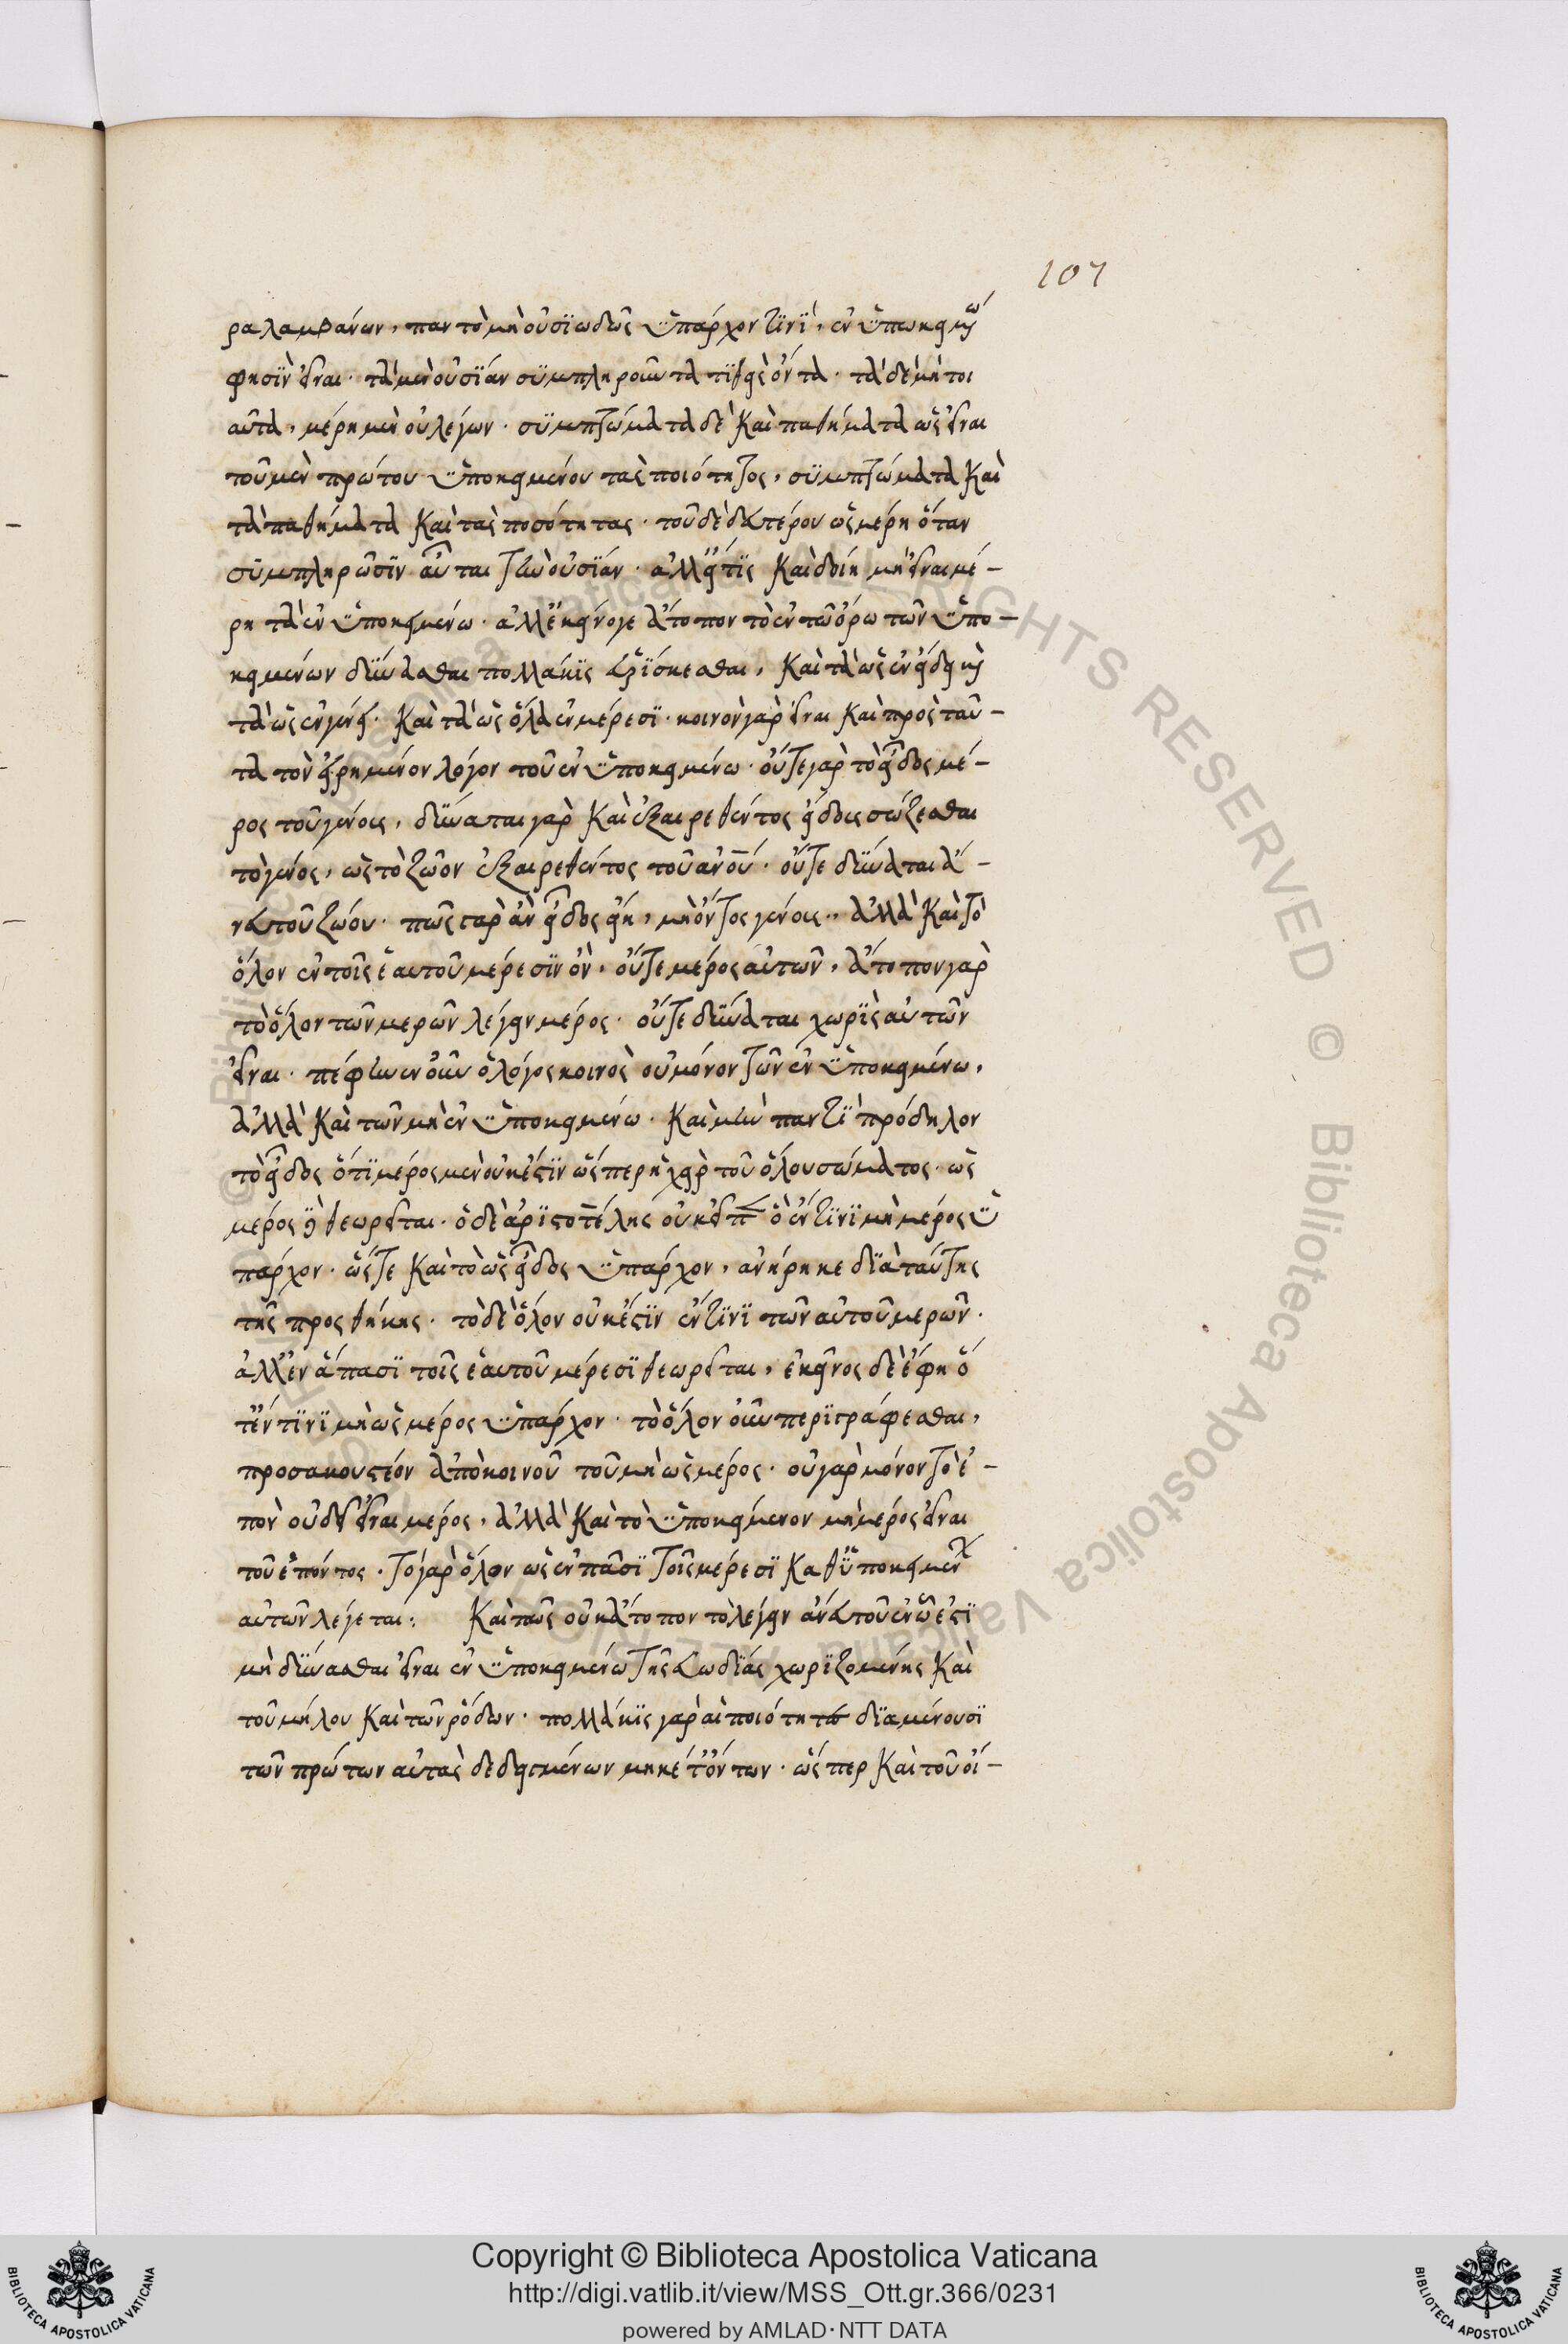 107
ραλαμβάνων, παν τὸ μὴ οὐσϊωδῶς ὑπάρχον τϊνὶ, ἐν ὑπωκειμῳ
φησὶν εἶναι· τὰ μὲν οὐσΐαν συμπληροῦντα τιθεὶς ὄντα· τὰ δὲ μὴ τοι
αῦτα, μέρη μὲν οὐ λέγων· συμπτώματα δὲ καὶ παθήματα ὡς εἶναι
τοῦ μὲν πρώτου ὑποκειμένου τὰς ποιότητος, συμπτώματα καὶ
τὰ παθήματα καὶ τὰς ποσότητας· τοῦ δὲ δευτέρου ὡς μέρη ὅταν
συμπληρῶσϊν αὗται τὴν οὐσΐαν· ἀλλ' εἴ τις καὶ δοίη μὴ εἶναι μέ-
ρη τὰ ἐν ὑποκειμένω· ἀλλ' ἐκεῖνογε ἄτοπον τὸ ἐν τῶ ὅρω τῶν ὑπο-
κειμένων δύνασθαι πολλάκις εὑρΐσκεσθαι, καὶ τὰ ὡς ἐν εἴδει καὶ
τὰ ὡς ἐν γένει· καὶ τὰ ὡς ὅλα ἐν μέρεσϊ· κοινὸν γὰρ εἶναι καὶ πρὸς ταῦ-
τα τὸν εἰρημένον λόγον τοῦ ἐν ὑποκειμένω· οὔτε γὰρ τὸ εἶδος μέ-
ρος τοῦ γένους, δύναται γὰρ καὶ ἐξαιρεθέντος εἴδους σώζεσθαι
τὸ γένος, ὡς τὸ ζῶον ἐξαιρεθέντος τοῦ ἀνοῦ· οὔτε δύναται ἄ-
νευ τοῦ ζώου· πῶς γὰρ ἂν εἶδος εἴη, μὴ ὄντος γένους, ἀλλὰ καὶ τὸ
ὅλον ἐν τοῖς ἑαυτοῦ μέρεσϊν ὂν, οὔτε μέρος αὐτῶν, ἄτοπον γὰρ
τὸ ὅλον τῶν μερῶν λέγειν μέρος· οὔτε δύναται χωρὶς αὐτῶν
εἶναι· πέφηνεν οὖν ὁ λόγος κοινὸς οὐ μόνον τῶν ἐν ὑποκειμένω,
ἀλλὰ καὶ τῶν μὴ ἐν ὑποκειμένω· καὶ μὴν παντὶ πρόδηλον
τὸ εἶδος ὅτι μέρος μὲν οὐκ ἔστϊν ὥσπερ ἡ χεὶρ τοῦ ὅλου σώματος· ὡς
μέρος θεωρεῖται· ὁ δὲ ἀρϊστοτέλης οὐκ εἶπ ὃ ἔν τϊνϊ μὴ μέρος ὑ
πάρχον· ὥστε καὶ τὸ ὡς εἶδος ὑπάρχον, ἀνήρηκε διὰ ταύτης
τῆς προσθήκης· τὸ δὲ ὅλον οὐκ ἔστϊν ἔν τϊνϊ τῶν αὐτοῦ μερῶν·
ἀλλ' ἐν ἅπασϊ τοῖς ἑαυτοῦ μέρεσϊ θεωρεῖται, ἐκεῖνος δὲ ἔφη ὅ
τ' ἔν τϊνϊ μὴ ὡς μέρος ὑπάρχον· τὸ ὅλον οὖν περϊγράφεσθαι,
προσακουστέον ἀπὸ κοινοῦ τοῦ μὴ ὡς μέρος· οὐ γὰρ μόνον τὸ ἐ-
πὸν οὐδεῖ εἶναι μέρος, ἀλλὰ καὶ τὸ ὑποκείμενον μὴ μέρος εἶναι
τοῦ ἐπόντος· τὸ γὰρ ὅλον ὡς ἐν πᾶσϊ τοῖς μέρεσϊ καθ' ὑποκειμεν
αὐτῶν λέγεται: καὶ πῶς οὐκ ἄτοπον τὸ λέγειν ἄνευ τοῦ ἐν ὧ ἐστϊ
μὴ δύνασθαι εἶναι ἐν ὑποκειμένω τῆς εὐωδΐας χωρϊζομένης καὶ
τοῦ μήλου καὶ τῶν ῥόδων· πολλάκις γὰρ αἱ ποιότητες δϊαμένουσϊ
τῶν πρώτων αὐτὰς δεδειγμένων μηκέτ' ὄντων· ὥσπερ καὶ τοῦ οἴ-
Copyright © Biblioteca Apostolica Vaticana
http://digi.vatlib.it/view/MSS_Ott.gr.366/0231
powered by AMLAD·NTT DATA